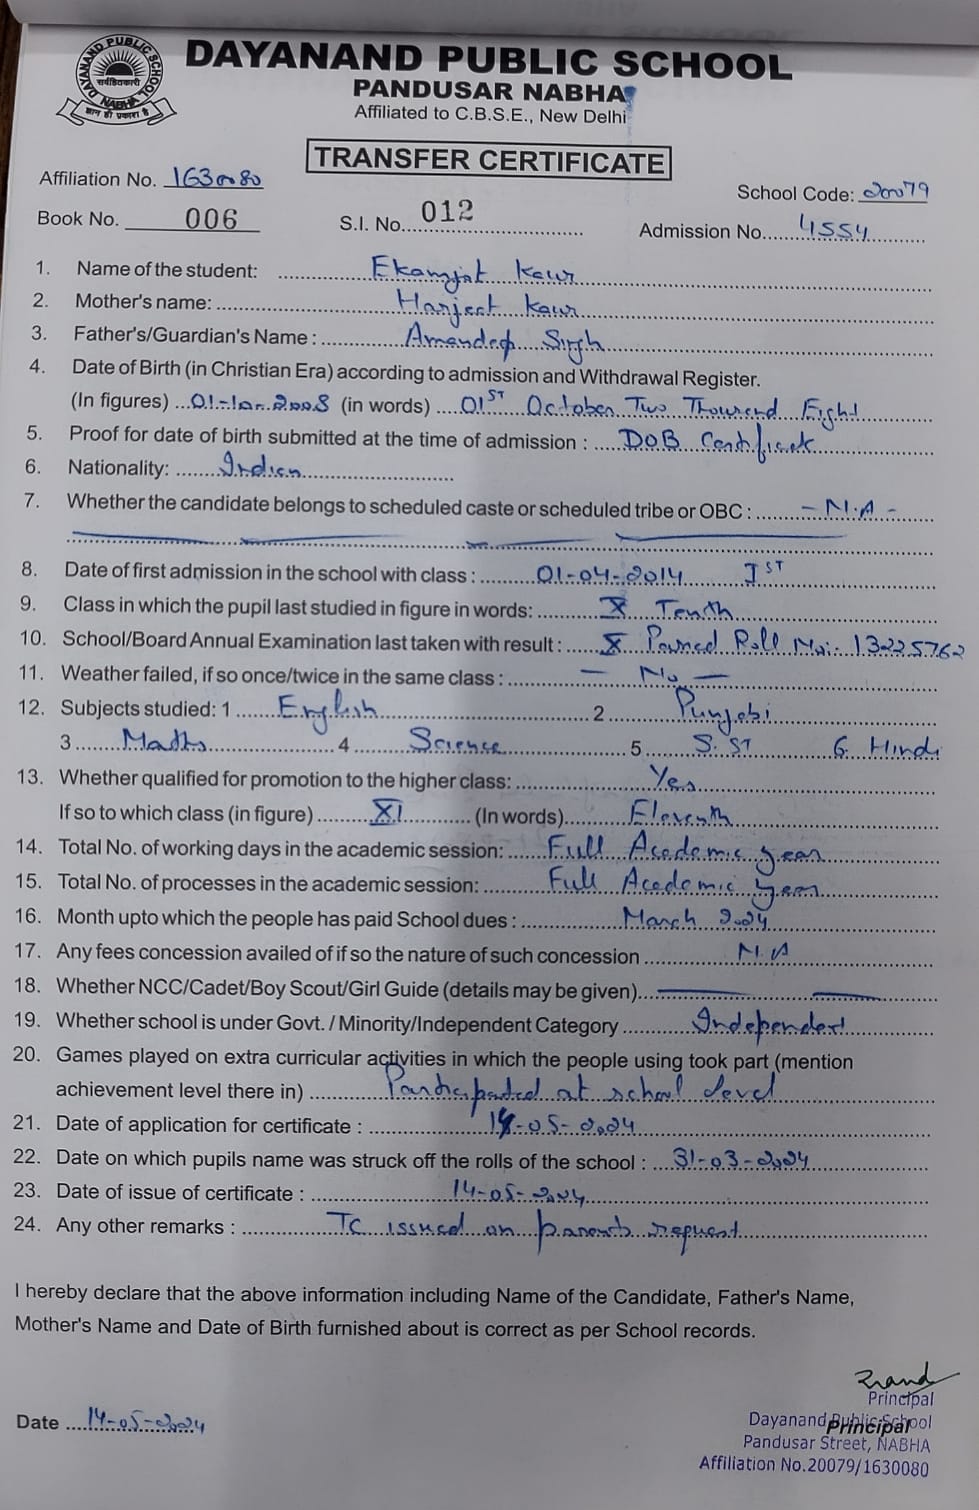 DAYANAND PUBLIC SCHOOL
DAYANAND PUBLIC SCHOOL
NABHA
PANDUSAR NABHA
Affiliated to C.B.S.E., New Delhi
TRANSFER CERTIFICATE
Affiliation No. 1630080
School Code: 20079
Book No. 006 S.I. No. 012 Admission No. 4554
1. Name of the student: Ekamjot Kaur
2. Mother's name: Harjeet Kaur
3. Father's/Guardian's Name : Amandeep Singh
4. Date of Birth (in Christian Era) according to admission and Withdrawal Register.
(In figures) 01-10-2008 (in words) 01ST October Two Thousand Eight
5. Proof for date of birth submitted at the time of admission : DOB Certificate
6. Nationality: Indian
7. Whether the candidate belongs to scheduled caste or scheduled tribe or OBC : - N.A -
8. Date of first admission in the school with class : 01-04-2014 IST
9. Class in which the pupil last studied in figure in words: X Tenth
10. School/Board Annual Examination last taken with result : X Passed Roll No:- 13225762
11. Weather failed, if so once/twice in the same class : — No —
12. Subjects studied: 1 English 2 Punjabi
3 Maths 4 Science 5 S.ST 6. Hindi
13. Whether qualified for promotion to the higher class: Yes
If so to which class (in figure) XI (In words) Eleventh
14. Total No. of working days in the academic session: Full Academic year
15. Total No. of processes in the academic session: Full Academic year
16. Month upto which the people has paid School dues : March 2024
17. Any fees concession availed of if so the nature of such concession N.A
18. Whether NCC/Cadet/Boy Scout/Girl Guide (details may be given)
19. Whether school is under Govt. / Minority/Independent Category Independent
20. Games played on extra curricular activities in which the people using took part (mention
achievement level there in) Participated at school level
21. Date of application for certificate : 14-05-2024
22. Date on which pupils name was struck off the rolls of the school : 31-03-2024
23. Date of issue of certificate : 14-05-2024
24. Any other remarks : TC issued on parents request
I hereby declare that the above information including Name of the Candidate, Father's Name,
Mother's Name and Date of Birth furnished about is correct as per School records.
Principal
Date 14-05-2024
Dayanand Public School
Principal
Pandusar Street, NABHA
Affiliation No.20079/1630080